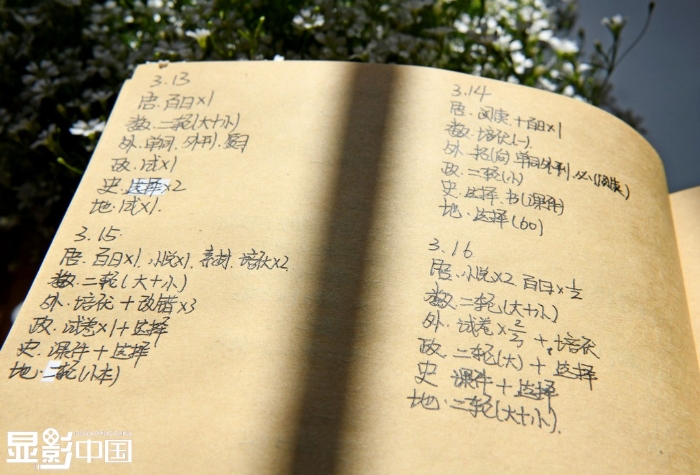 3.13
语.百日×1
数.二轮(大+小)
外.单词.外刊.
政.试×1
史.选择×2
地.试×1.
3.14
语.阅读+百日×1
数.培优(一)
外.单词外刊.
政.二轮(小)
史.选择.书(课件)
地.选择(60)
3.15
语.百日×1.小说×1.素材.培优×2
数.二轮(大+小)
外.培优+改错×3
政.试卷×1+选择
史.课件+选择
地.二轮(小本)
3.16
语.小说×2 百日×½
数.二轮(大+小)
外.试卷×⅔+培优
政.二轮(大)+选择
史 课件+选择
地.二轮(大+小).
显影中国